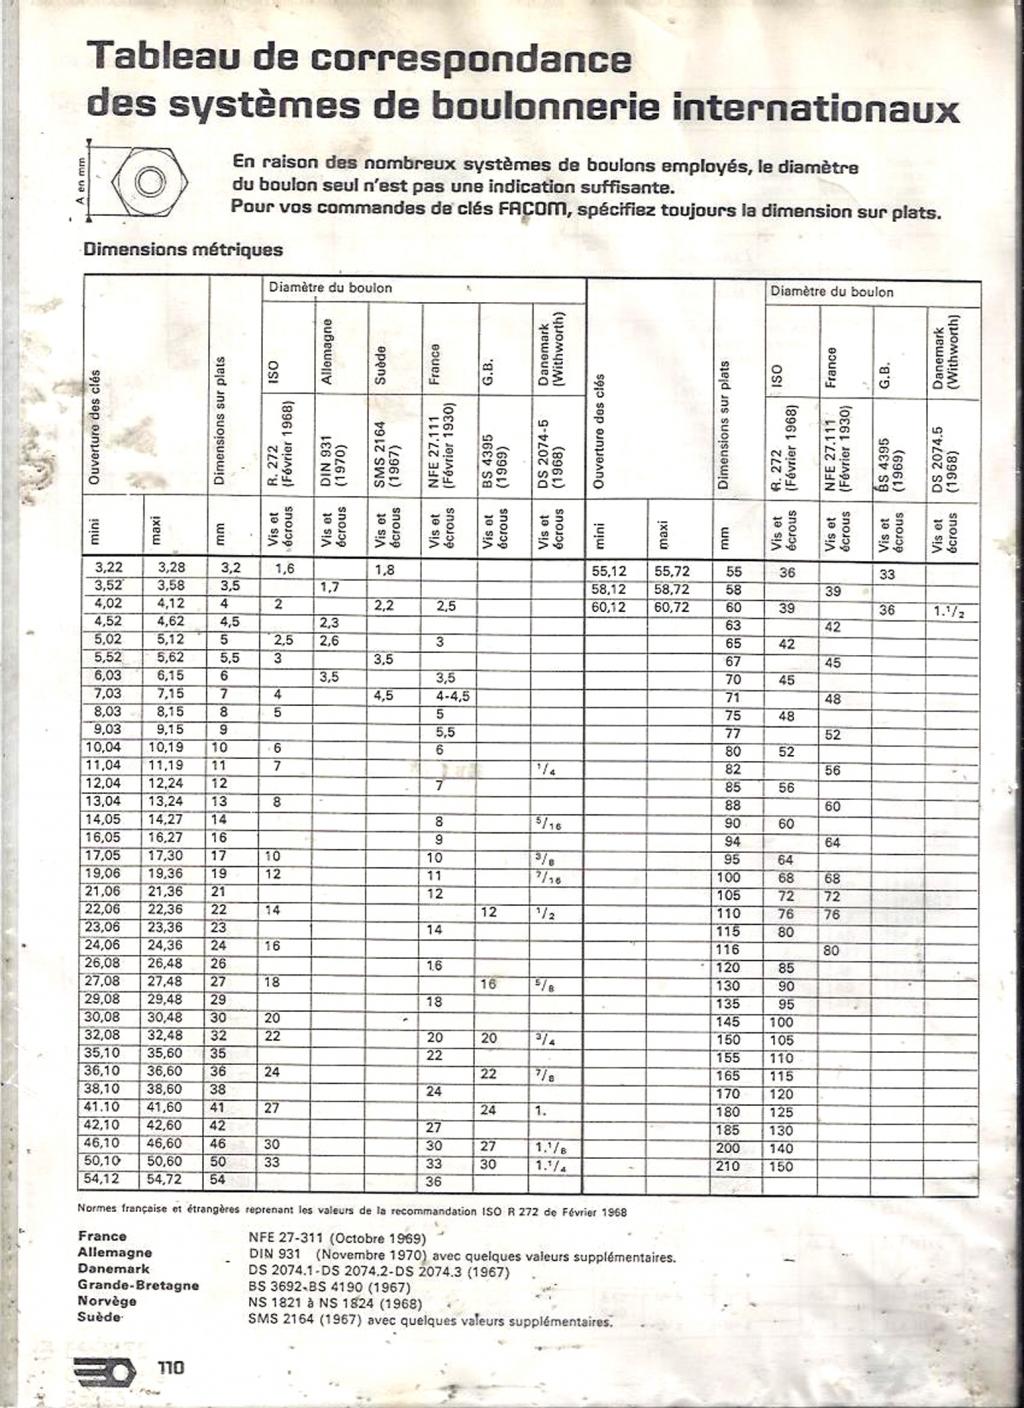 Tableau de correspondance
des systèmes de boulonnerie internationaux
A en mm
En raison des nombreux systèmes de boulons employés, le diamètre
du boulon seul n'est pas une indication suffisante.
Pour vos commandes de clés FACOM, spécifiez toujours la dimension sur plats.
Dimensions métriques
Ouverture des clés
Dimensions sur plats
Diamètre du boulon
ISO
Allemagne
Suède
France
G.B.
Danemark (Withworth)
R. 272 (Février 1968)
DIN 931 (1970)
SMS 2164 (1967)
NFE 27.111 (Février 1930)
BS 4395 (1969)
DS 2074-5 (1968)
mini maxi mm Vis et écrous Vis et écrous Vis et écrous Vis et écrous Vis et écrous Vis et écrous
Ouverture des clés
Dimensions sur plats
Diamètre du boulon
ISO
France
G.B.
Danemark (Withworth)
R. 272 (Février 1968)
NFE 27.111 (Février 1930)
BS 4395 (1969)
DS 2074.5 (1968)
mini maxi mm Vis et écrous Vis et écrous Vis et écrous Vis et écrous
3,22 3,28 3,2 1,6 1,8
3,52 3,58 3,5 1,7
4,02 4,12 4 2 2,2 2,5
4,52 4,62 4,5 2,3
5,02 5,12 5 2,5 2,6 3
5,52 5,62 5,5 3 3,5
6,03 6,15 6 3,5 3,5
7,03 7,15 7 4 4,5 4-4,5
8,03 8,15 8 5 5
9,03 9,15 9 5,5
10,04 10,19 10 6 6
11,04 11,19 11 7 1/4
12,04 12,24 12 7
13,04 13,24 13 8
14,05 14,27 14 8 5/16
16,05 16,27 16 9
17,05 17,30 17 10 10 3/8
19,06 19,36 19 12 11 7/16
21,06 21,36 21 12
22,06 22,36 22 14 12 1/2
23,06 23,36 23 14
24,06 24,36 24 16
26,08 26,48 26 16
27,08 27,48 27 18 16 5/8
29,08 29,48 29 18
30,08 30,48 30 20
32,08 32,48 32 22 20 20 3/4
35,10 35,60 35 22
36,10 36,60 36 24 22 7/8
38,10 38,60 38 24
41.10 41,60 41 27 24 1.
42,10 42,60 42 27
46,10 46,60 46 30 30 27 1.1/8
50,10 50,60 50 33 33 30 1.1/4
54,12 54,72 54 36
55,12 55,72 55 36 33
58,12 58,72 58 39
60,12 60,72 60 39 36 1.1/2
63 42
65 42
67 45
70 45
71 48
75 48
77 52
80 52
82 56
85 56
88 60
90 60
94 64
95 64
100 68 68
105 72 72
110 76 76
115 80
116 80
120 85
130 90
135 95
145 100
150 105
155 110
165 115
170 120
180 125
185 130
200 140
210 150
Normes française et étrangères reprenant les valeurs de la recommandation ISO R 272 de Février 1968
France NFE 27-311 (Octobre 1969)
Allemagne DIN 931 (Novembre 1970) avec quelques valeurs supplémentaires.
Danemark DS 2074.1-DS 2074.2-DS 2074.3 (1967)
Grande-Bretagne BS 3692-BS 4190 (1967)
Norvège NS 1821 à NS 1824 (1968)
Suède SMS 2164 (1967) avec quelques valeurs supplémentaires.
110